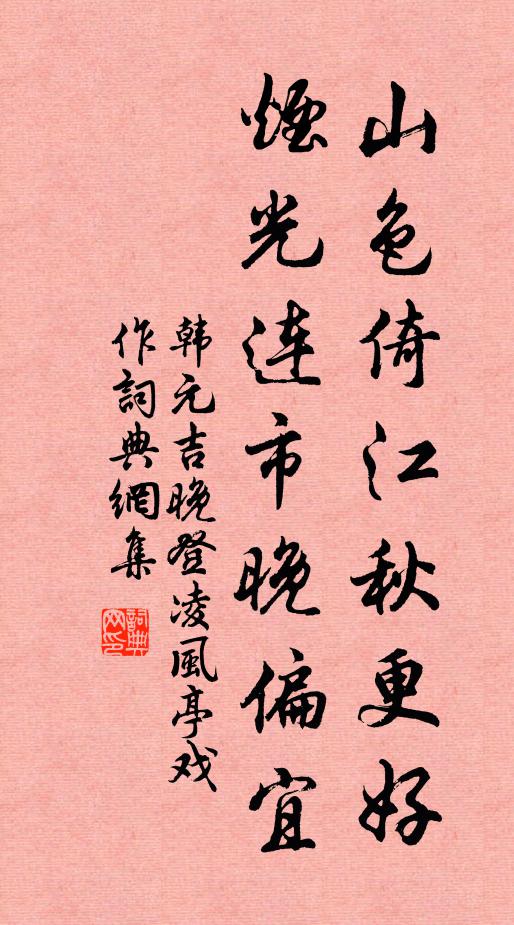 山色倚江秋更好
煙光連市晚偏宜
韩元吉晚登凌風亭戏
作詞典網集
詞典网印